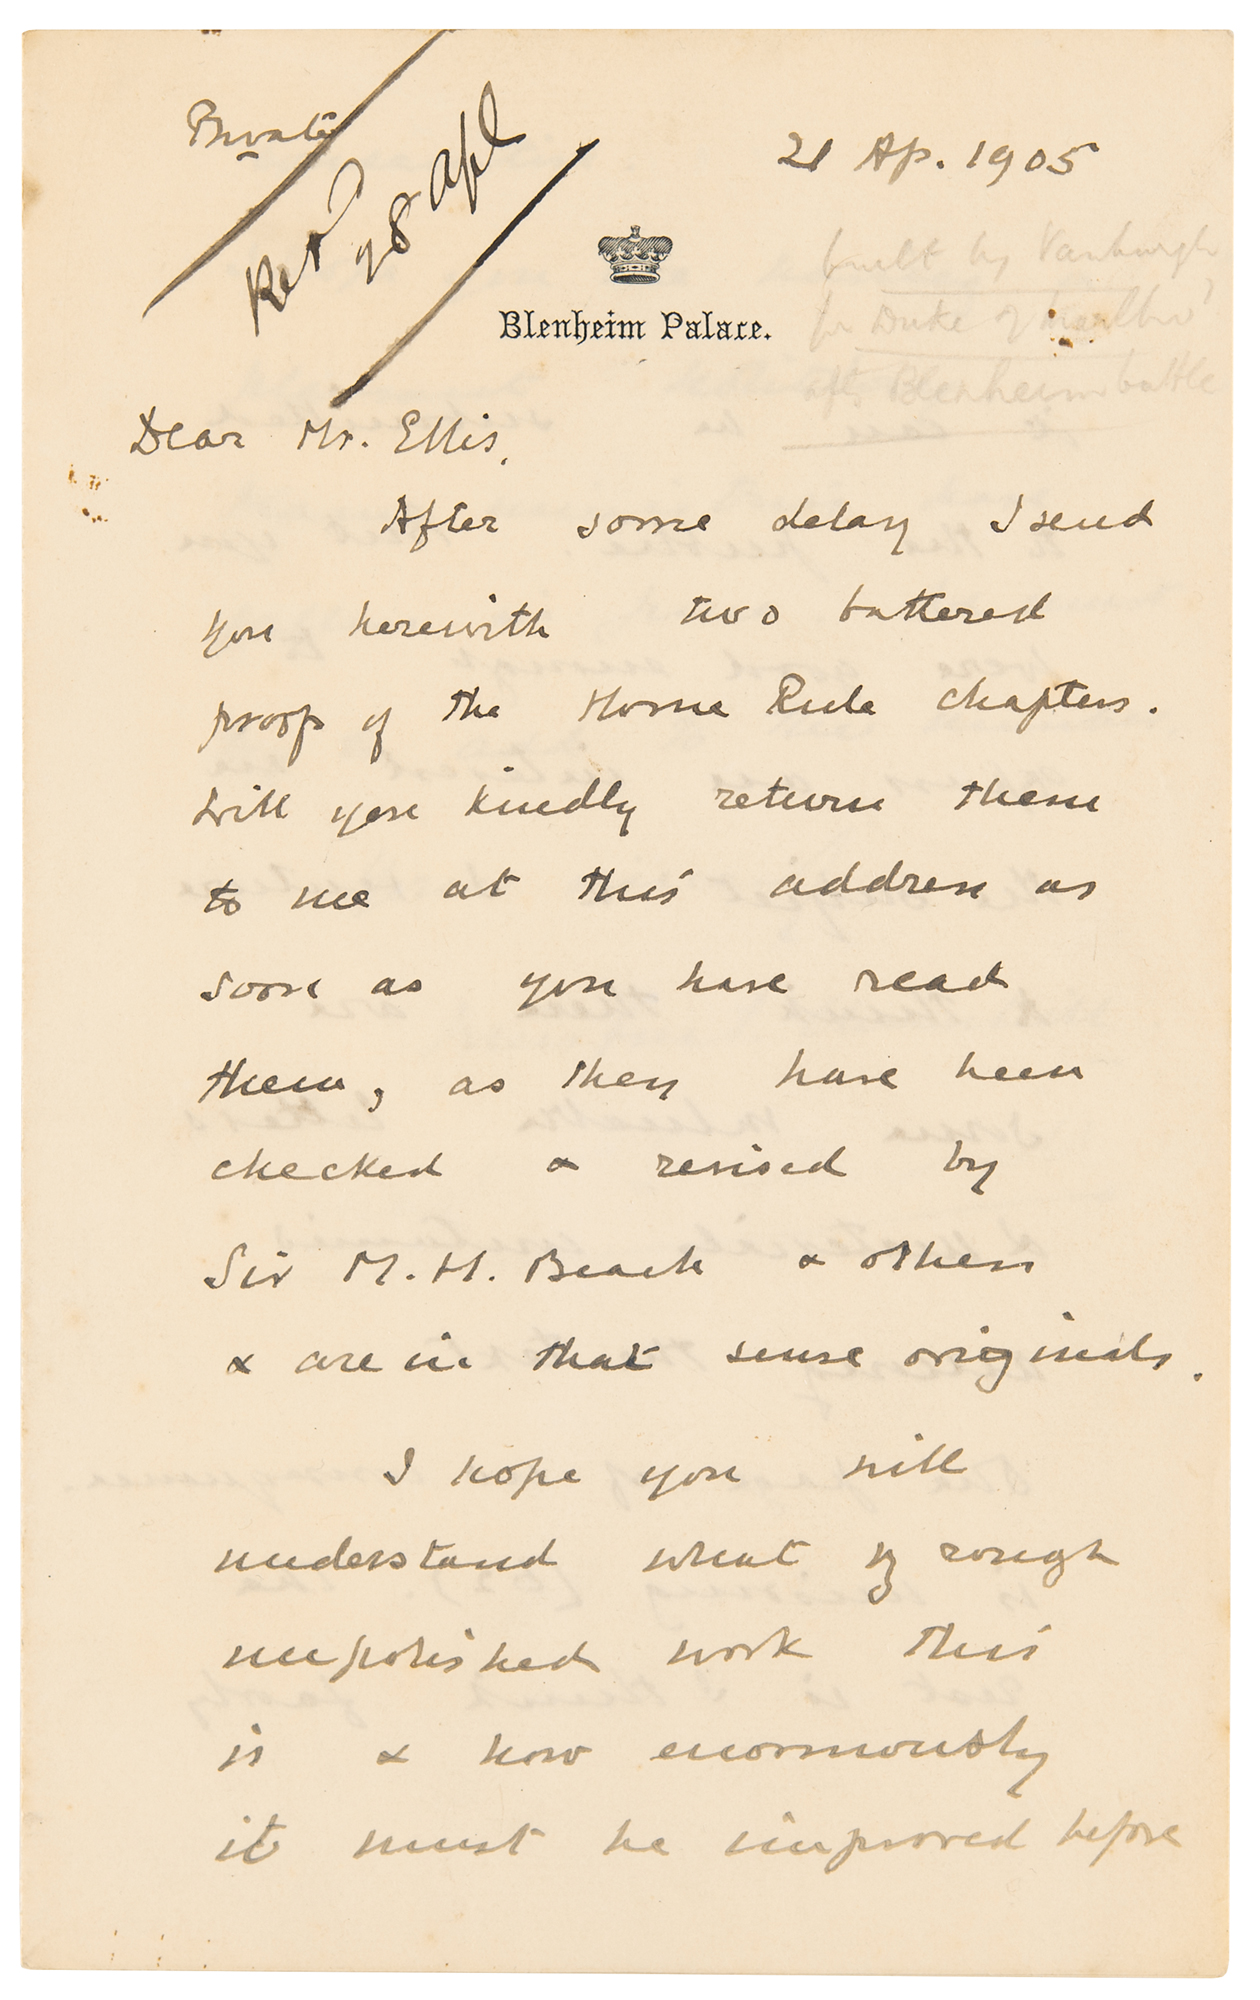 Private
Retd
28 Apl
21 Ap. 1905
built by Vanburgh
for Duke of Marlbro'
aft. Blenheim battle
Blenheim Palace.
Dear Mr. Ellis,
After some delay I send
you herewith two battered
proofs of the Home Rule chapters.
Will you kindly return them
to me at this address as
soon as you have read
them, as they have been
checked & revised by
Sir M. H. Beach & others
& are in that sense originals.
I hope you will
understand what rough
unpolished work this
is & how enormously
it must be improved before